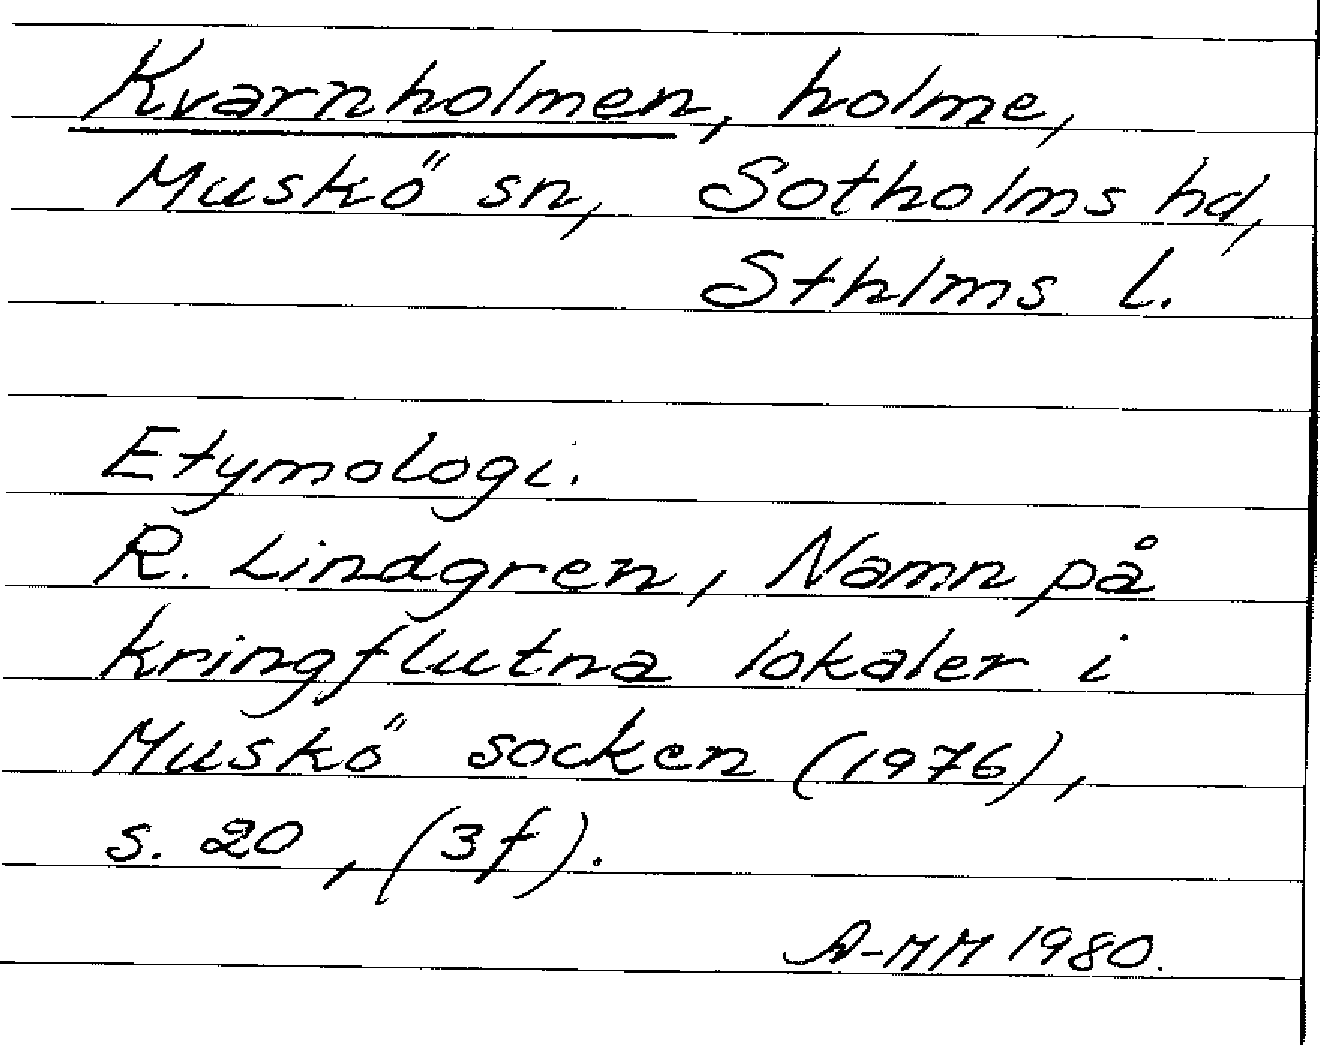 Kvarnholmen, holme,
Muskö sn, Sotholms hd,
Sthlms l.
Etymologi.
R. Lindgren, Namn på
kringflutna lokaler i
Muskö socken (1976),
s. 20, (3f).
A-MM 1980.